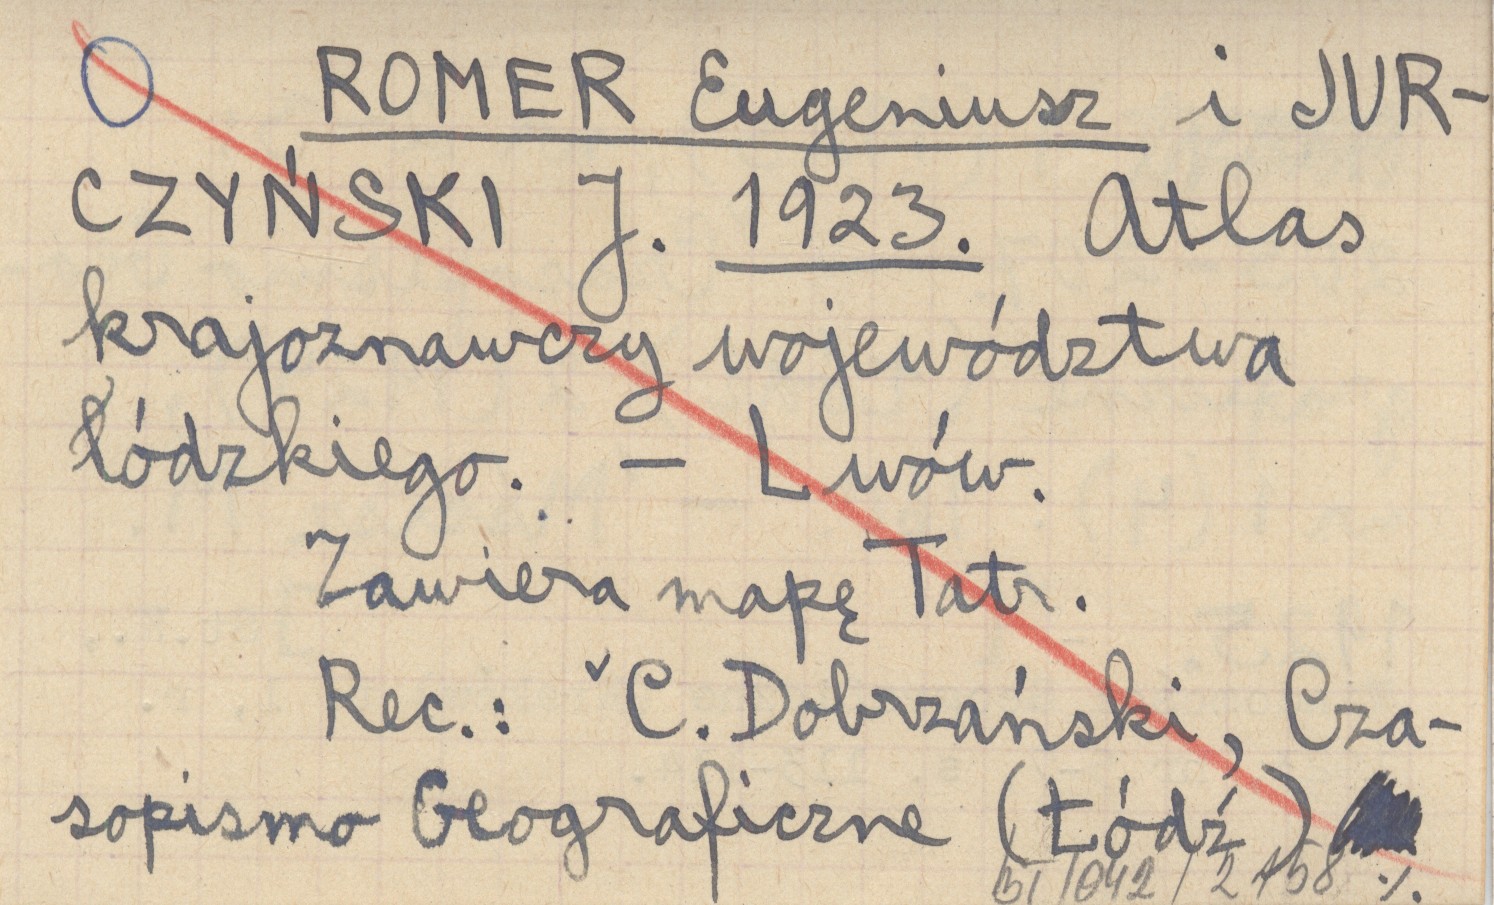 ROMER Eugeniusz i JUR-
CZYŃSKI J. 1923. Atlas
krajoznawczy województwa
łódzkiego. - Lwów.
Zawiera mapę Tatr.
Rec.: C. Dobrzański, Cza-
sopismo Geograficzne (Łódź)
BI/042/2458 ./.